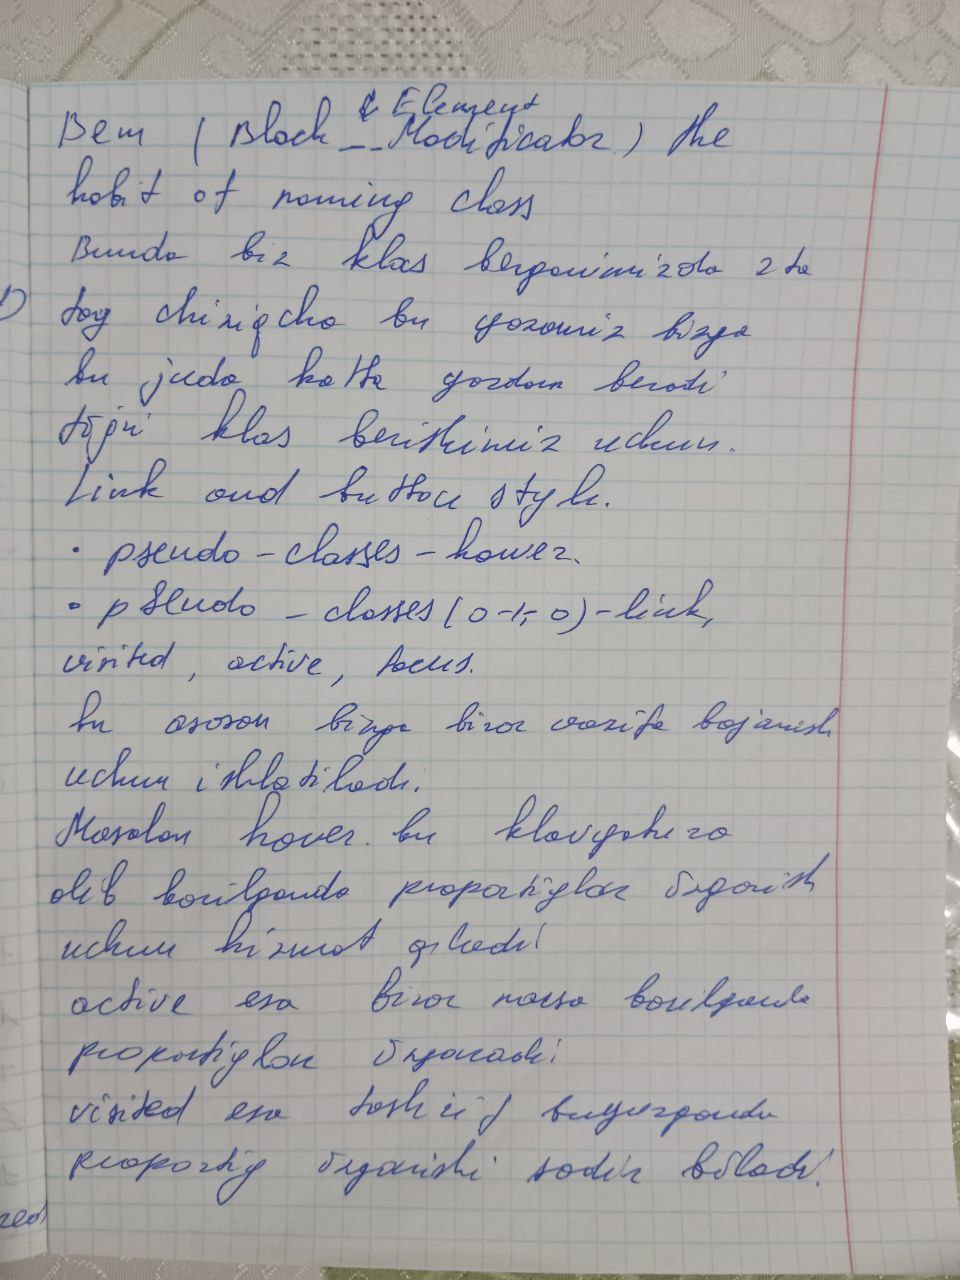 & Element
Bem (Block __Modificator) the
habit of naming class
Bunda biz klas berganimizda 2 ta
tag chiziqcha bn yozamiz bizga
bu juda katta yordam beradi
tõg'ri klas berishimiz uchun.
Link and button style.
• pseudo-classes-hower.
• pseudo-classes(0-1-0)-link,
visited, active, focus.
bu asosan bizga biror vazifa bajarish
uchun ishlatiladi.
Masalan hover. bu
olib borilganda propartiylar õzgarish
uchun hizmat qiladi
active esa biror narsa bosilganda
propartiylar õzgaradi
visited esa tashrif buyurganda
propartiy õzgarishi sodir bõladi.